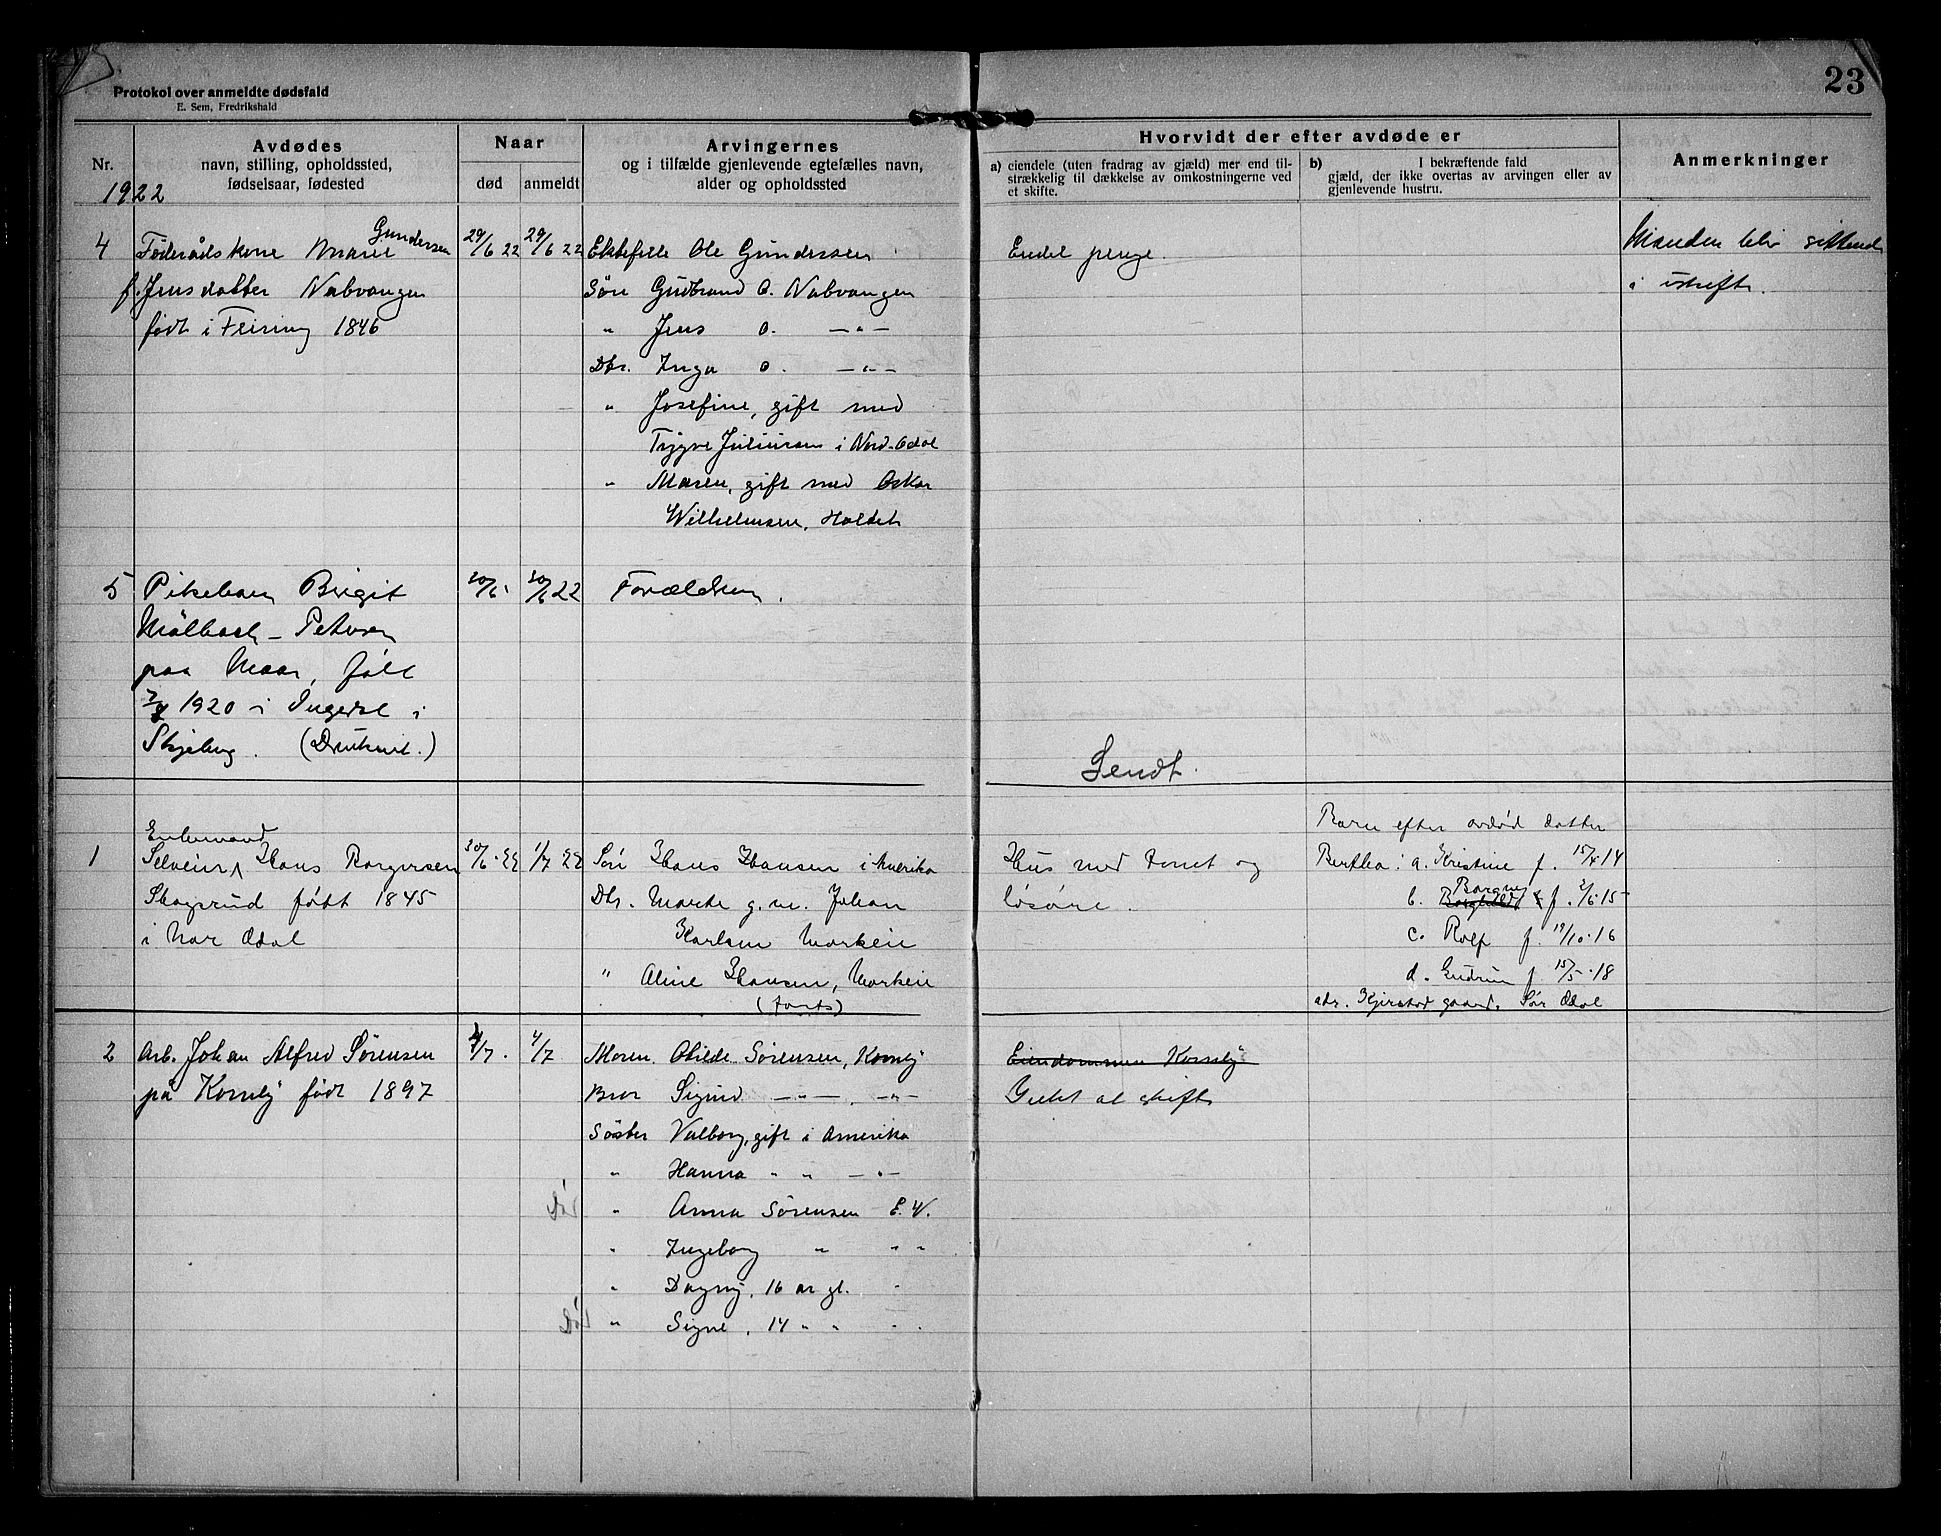 Protokol over anmeldte dødsfald
E. Sem, Fredrikshald
23
Nr.
Avdødes
navn, stilling, opholdssted,
fødselsaar, fødested
Naar
død
anmeldt
Arvingernes
og i tilfælde gjenlevende egtefælles navn,
alder og opholdssted
Hvorvidt der efter avdøde er
a) eiendele (uten fradrag av gjæld) mer end til-
strækkelig til dækkelse av omkostningerne ved
et skifte.
b) I bekræftende fald
gjæld, der ikke overtas av arvingen eller av
gjenlevende hustru.
Anmerkninger
1922
4
Føderådskone Marie Gundersen
f. Jensdatter Nabvangen
født i Feiring 1846
29/6 22
29/6 22
Ektefelle Ole Gundersen
Søn Gudbrand O. Nabvangen
" Jens O. —"—
Dtr. Inga O. —"—
" Josefine, gift med
Trygve Juliussen i Nord-Odal
" Maren, gift med Oskar
Wilhelmsen, Holteh
Endel penge.
Manden blir sittende
i uskifte.
5
Pikebarn Birgit
Mölbach-Petersen
paa Maar, født
1920 i Ingedal i
Skjeberg. (Druknet.)
30/6
30/6 22
Forældrene.
Sendt.
1
Enkemand
Selveier Hans Borgersen
Skogsrud født 1845
i Nor Odal
30/6 22
1/7 22
Søn Hans Hansen i Amerika
Dtr. Marte g. m. Johan
Karlsen Morkeie
" Aline Hansen, Morkeie
(forts)
Hus med tomt og
løsøre.
Barn efter avdød datter
Bertha: a. Kristine f. 15/4 14
b. Borghild Borgny f. 2/6 15
c. Rolf f. 19/10 16
d. Gudrun f. 15/5 18
adr. Kjerstad gaard, Sør Odal
2
Arb. Johan Alfred Sørensen
på Kornely født 1897
4/7.
4/7
Moren Otilde Sørensen, Kornely
Bror Sigurd —"—, —"—
Søster Valborg, gift i Amerika
" Hanna " " —"—
Død " Anna Sørensen E.V.
" Ingeborg " " "
" Dagny, 16 år gl. "
Død " Signe, 14 " " "
Eiendommen Kornely
Intet at skifte